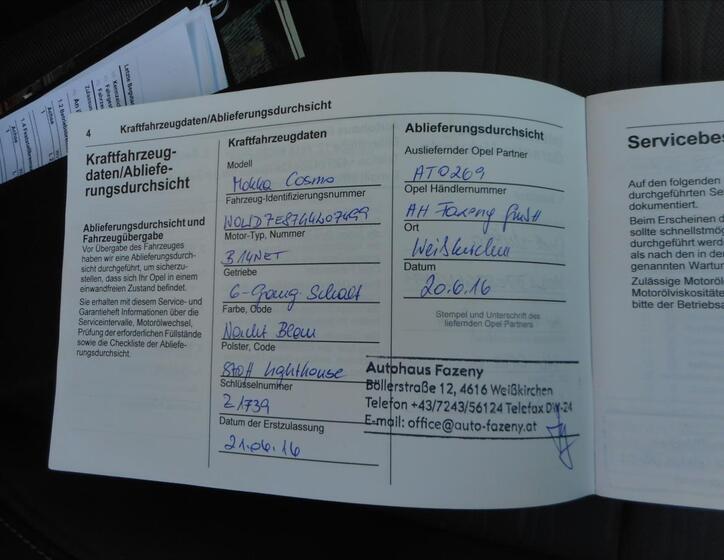 4 Kraftfahrzeugdaten/Ablieferungsdurchsicht
Kraftfahrzeug-
daten/Abliefe-
rungsdurchsicht
Ablieferungsdurchsicht und
Fahrzeugübergabe
Vor Übergabe des Fahrzeuges
haben wir eine Ablieferungsdurch-
sicht durchgeführt, um sicherzu-
stellen, dass sich Ihr Opel in einem
einwandfreien Zustand befindet.
Sie erhalten mit diesem Service- und
Garantieheft Informationen über die
Serviceintervalle, Motorölwechsel,
Prüfung der erforderlichen Füllstände
sowie die Checkliste der Abliefe-
rungsdurchsicht.
Kraftfahrzeugdaten
Modell
Mokka Cosmo
Fahrzeug-Identifizierungsnummer
Motor-Typ, Nummer
B14NET
Getriebe
6-Gang Schalt
Farbe, Code
Nacht Blau
Polster, Code
lighthouse
Schlüsselnummer
Z1739
Datum der Erstzulassung
21.06.16
Ablieferungsdurchsicht
Ausliefernder Opel Partner
AT0269
Opel Händlernummer
AH Fazeny GmbH
Ort
Weißkirchen
Datum
20.6.16
Stempel und Unterschrift des
liefernden Opel Partners
Autohaus Fazeny
Böllerstraße 12, 4616 Weißkirchen
Telefon +43/7243/56124 Telefax DW-24
E-mail: office@auto-fazeny.at
Servicebes
Auf den folgenden
durchgeführten Se
dokumentiert.
Beim Erscheinen d
sollte schnellstmög
durchgeführt werd
als nach den in der
genannten Wartun
Zulässige Motoröl
Motorölviskositäte
bitte der Betriebsa